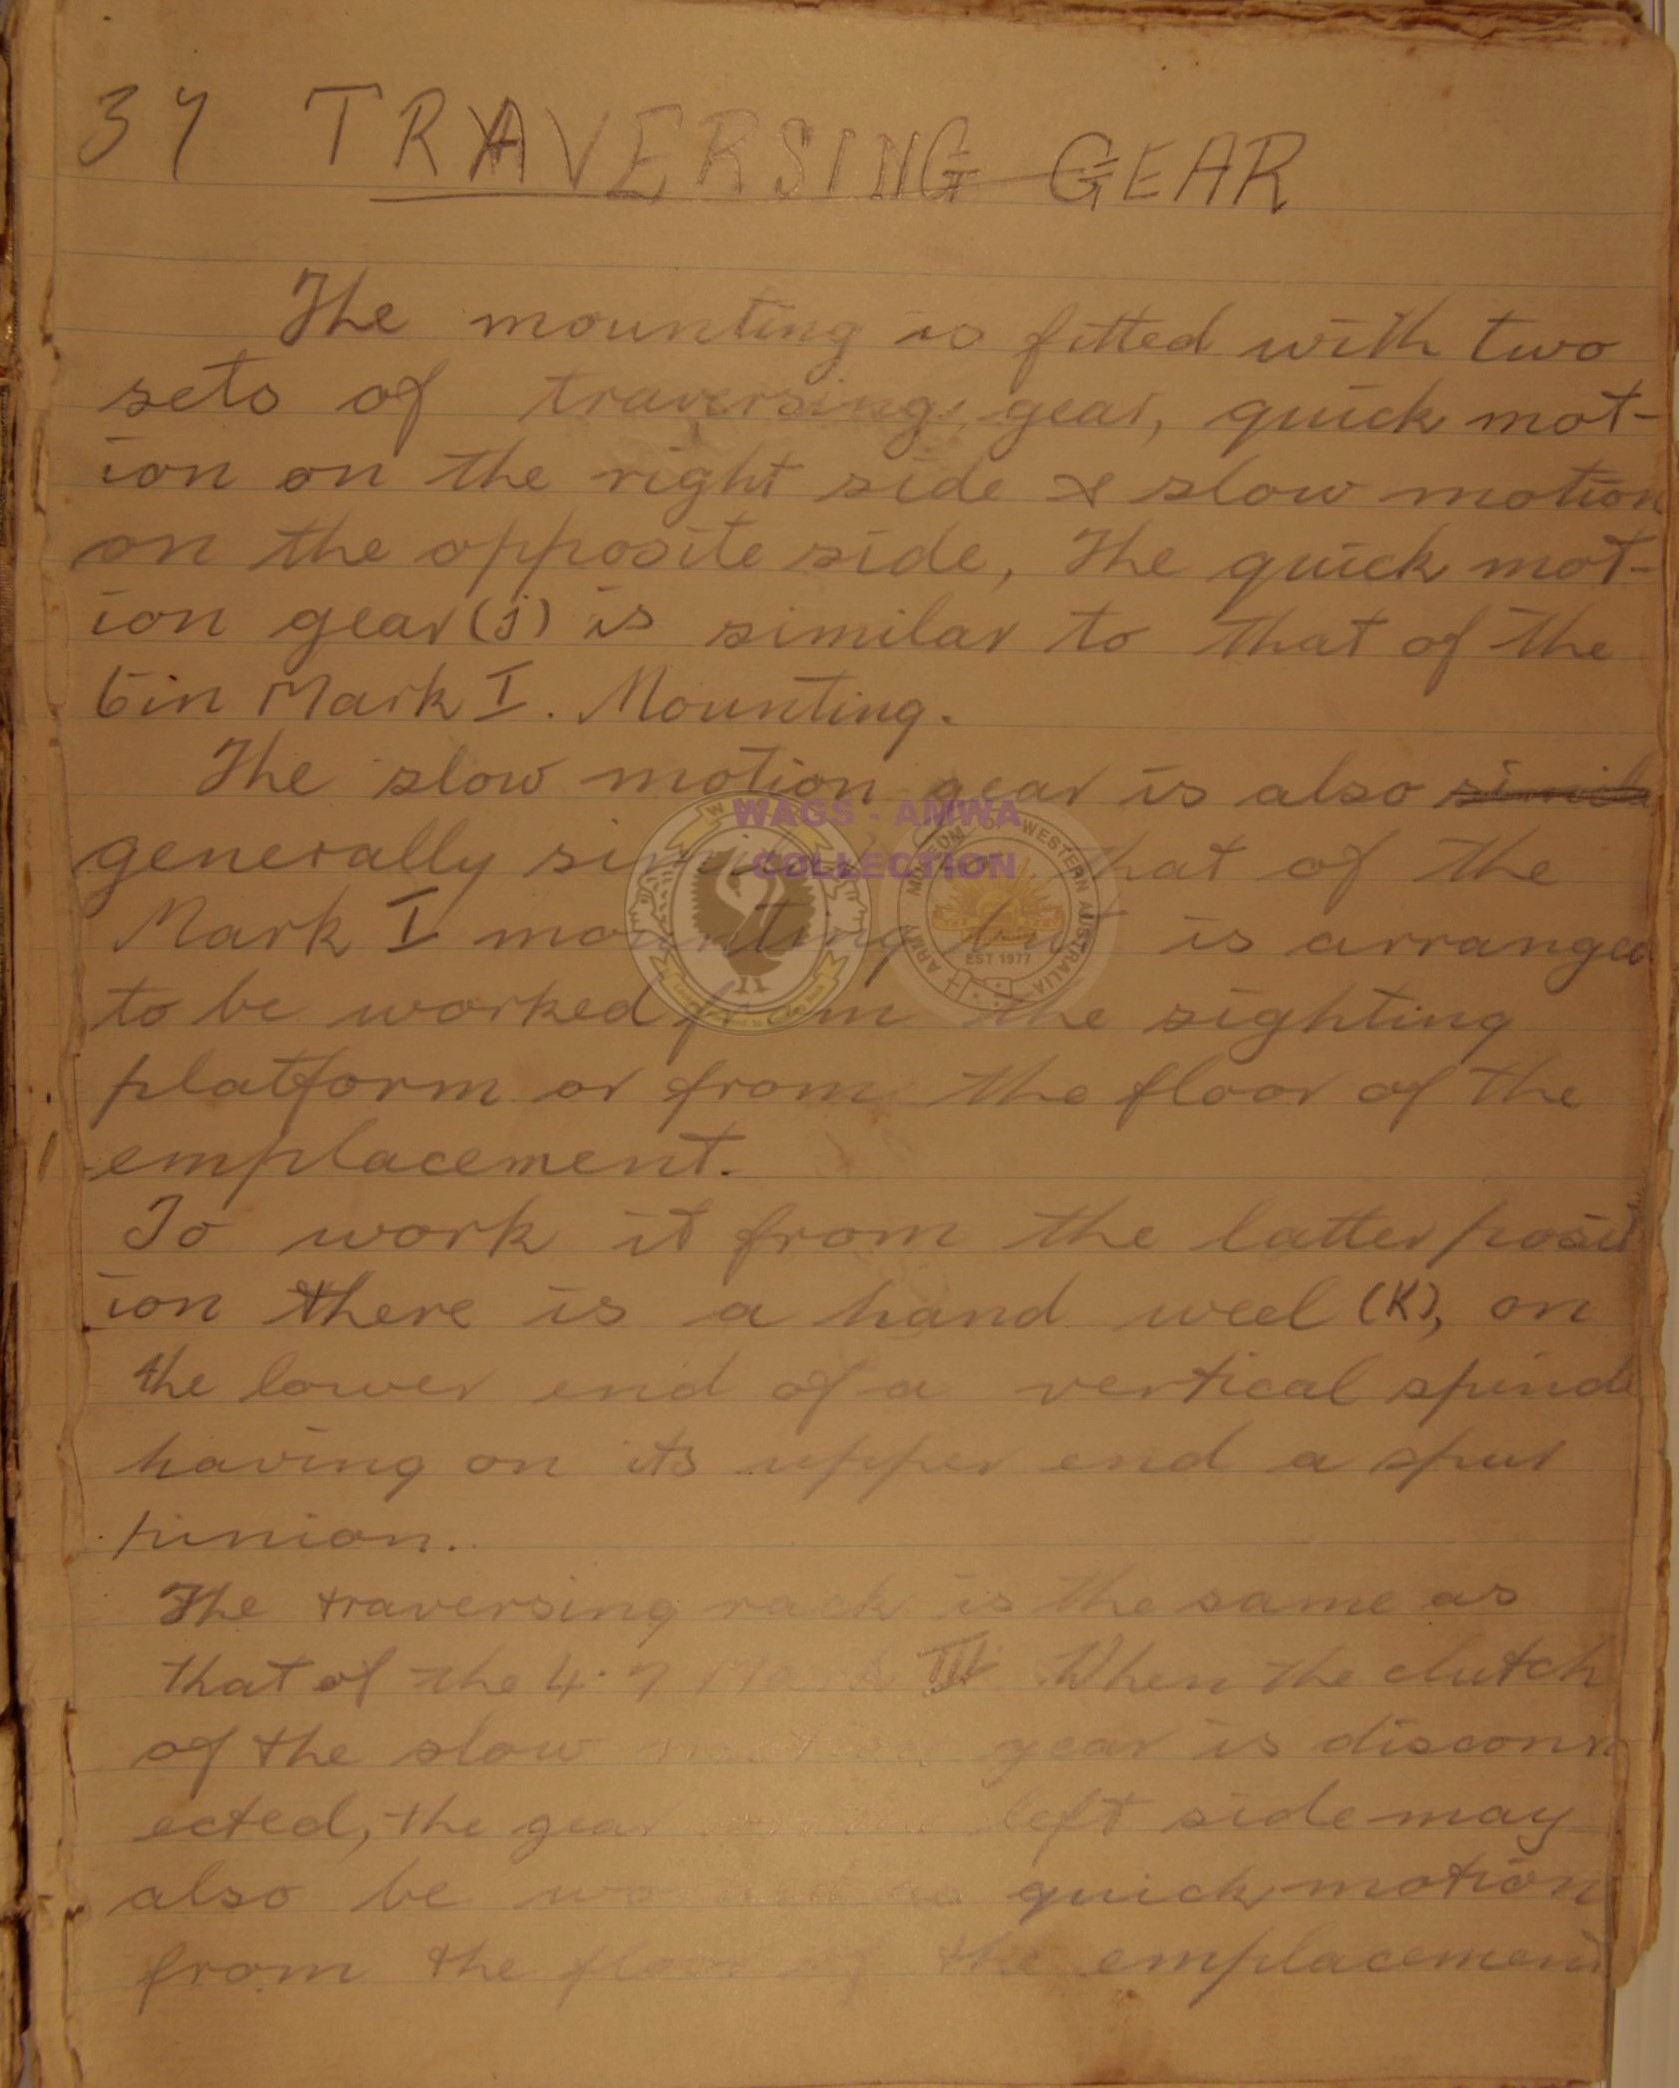 37 TRAVERSING GEAR
The mounting is fitted with two
sets of traversing gear, quick mot-
ion on the right side & slow motion
on the opposite side, The quick mot-
ion gear (j) is similar to that of the
6in Mark I. Mounting.
The slow motion gear is also simila
WAGS - AMWA
COLLECTION
generally similar that of the
Mark I mounting but is arranged
EST 1977
to be worked from the sighting
platform or from the floor of the
emplacement.
To work it from the latter posit
ion there is a hand weel (K), on
the lower end of a vertical spindle
having on its upper end a spur
pinion.
The traversing rack is the same as
that of the 4.7 Mark III. When the clutch
of the slow motion gear is disconn
ected, the gear left side may
also be quick motion
from the floor of the emplacement
MUSEUM OF WESTERN AUSTRALIA
ARMY